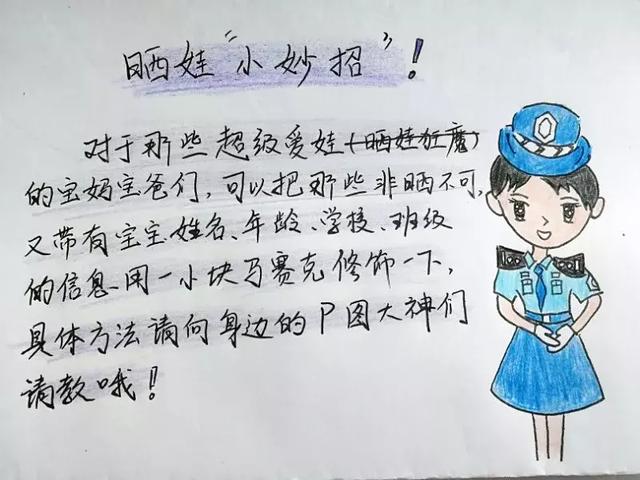 晒娃“小妙招”!
对于那些超级爱娃(晒娃狂魔)
的宝妈宝爸们,可以把那些非晒不可,
又带有宝宝姓名、年龄、学校、班级
的信息、用一小块马赛克修饰一下,
具体方法请向身边的P图大神们
请教哦!